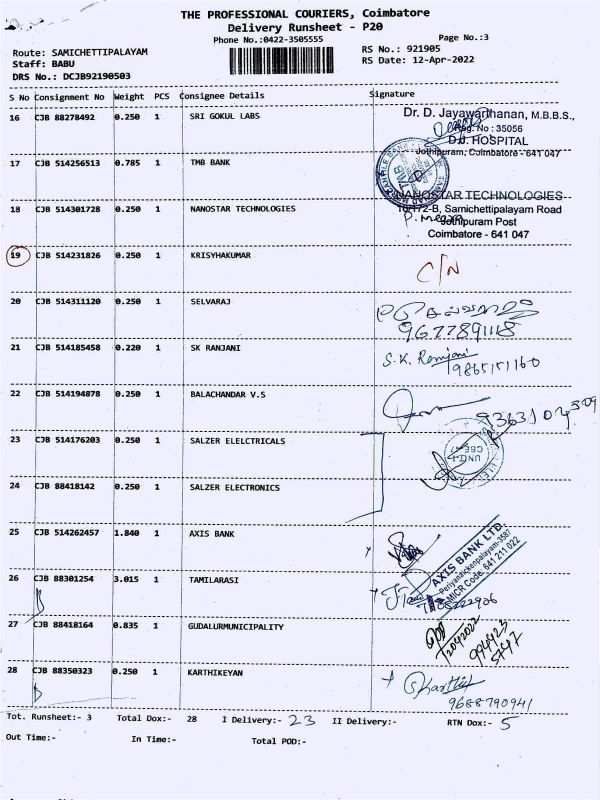 THE PROFESSIONAL COURIERS, Coimbatore
Delivery Runsheet - P20
Phone No.:0422-3505555
Page No.:3
Route: SAMICHETTIPALAYAM
RS No.: 921905
Staff: BABU
RS Date: 12-Apr-2022
DRS No.: DCJB92190503
S No Consignment No Weight PCS Consignee Details Signature
16 CJB 88278492 0.250 1 SRI GOKUL LABS
Dr. D. Jayawarthanan, M.B.B.S.,
Reg. No : 35056
D.J. HOSPITAL
Jothipuram, Coimbatore - 641 047
17 CJB 514256513 0.785 1 TMB BANK
18 CJB 514301728 0.250 1 NANOSTAR TECHNOLOGIES
NANOSTAR TECHNOLOGIES
10/172-B, Samichettipalayam Road
Jothipuram Post
Coimbatore - 641 047
19 CJB 514231826 0.250 1 KRISYHAKUMAR C/N
20 CJB 514311120 0.250 1 SELVARAJ
9677891118
21 CJB 514185458 0.220 1 SK RANJANI S.K. Ranjani
9865151160
22 CJB 514194878 0.250 1 BALACHANDAR V.S
23 CJB 514176203 0.250 1 SALZER ELELCTRICALS
UNIT-I
CBE-47
24 CJB 88418142 0.250 1 SALZER ELECTRONICS
25 CJB 514262457 1.840 1 AXIS BANK
AXIS BANK LTD.
Periyanaickenpalayam-3587
MICR Code: 641 211 022
26 CJB 88301254 3.015 1 TAMILARASI
27 CJB 88418164 0.835 1 GUDALURMUNICIPALITY
994423
5747
28 CJB 88350323 0.250 1 KARTHIKEYAN Karthik
9688790941
Tot. Runsheet:- 3 Total Dox:- 28 I Delivery:- 23 II Delivery:- RTN Dox:- 5
Out Time:- In Time:- Total POD:-